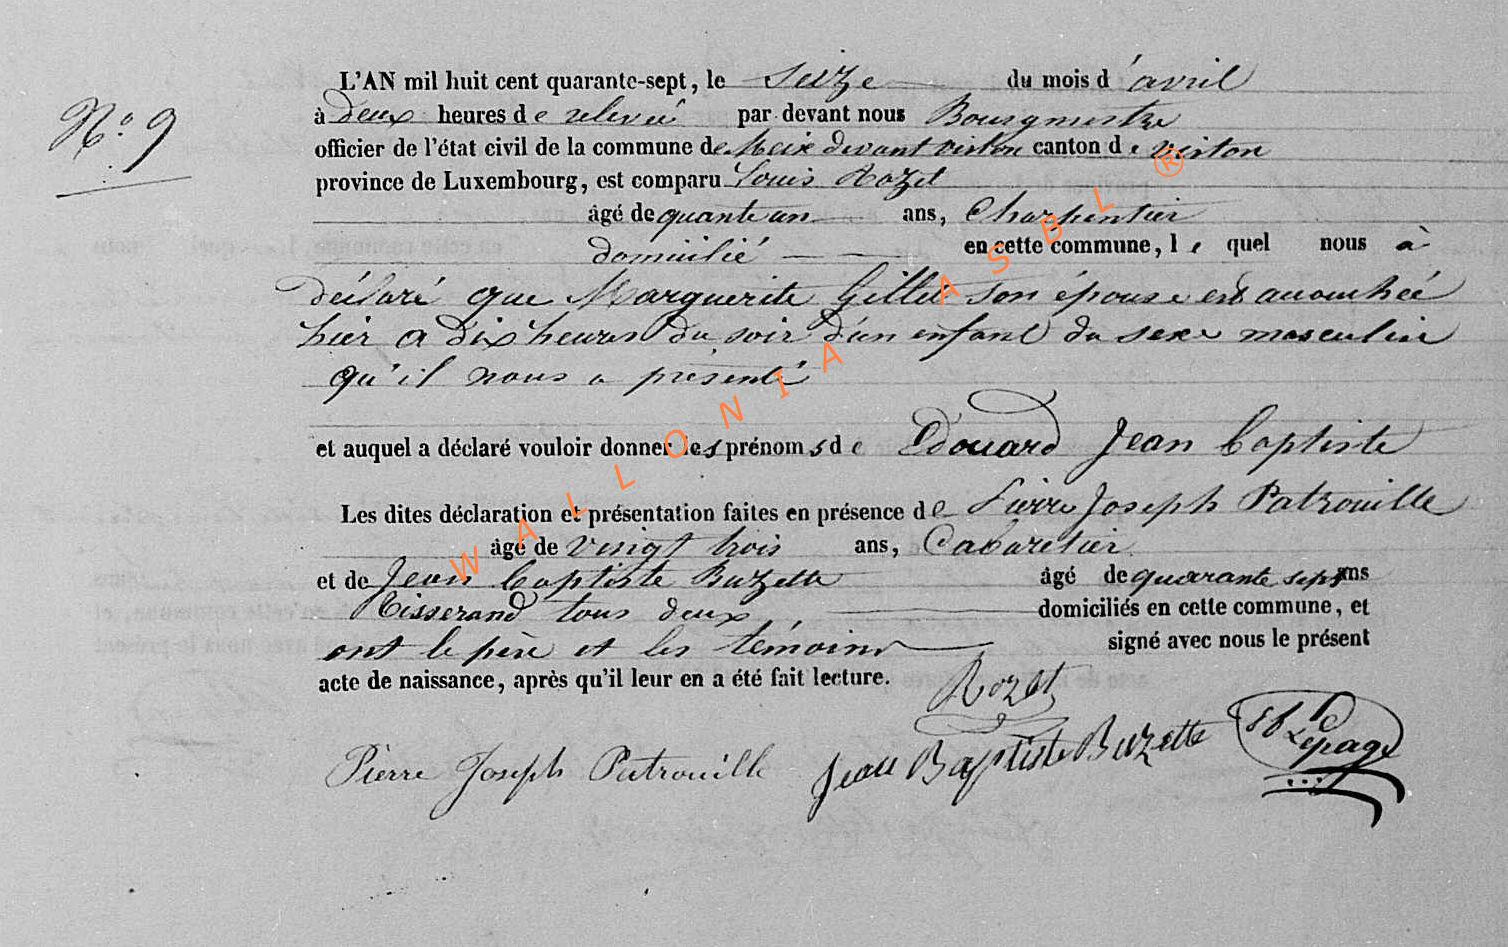 N.o 9
L'AN mil huit cent quarante-sept, le Seize du mois d'avril
à deux heures de relevée par devant nous Bourgmestre
officier de l'état civil de la commune de Meix devant virton canton de virton
province de Luxembourg, est comparu Louis Rozet
âgé de quante un ans, Charpentier
domicilié en cette commune, le quel nous à
déclaré que Marguerite Gillet son épouse est accouchée
hier a dix heures du soir d'un enfant du sexe masculin
qu'il nous a présenté
et auquel a déclaré vouloir donner les prénoms de Edouard Jean Baptiste
Les dites déclaration et présentation faites en présence de Pierre Joseph Patrouille
âgé de vingt trois ans, Cabaretier
et de Jean Baptiste Buzette âgé de quarante sept ans
Tisserand tous deux domiciliés en cette commune, et
ont le père et les témoins signé avec nous le présent
acte de naissance, après qu'il leur en a été fait lecture.
Rozet
Pierre Joseph Patrouille Jean Baptiste Buzette Lepage
WALLONIA ASBL ®